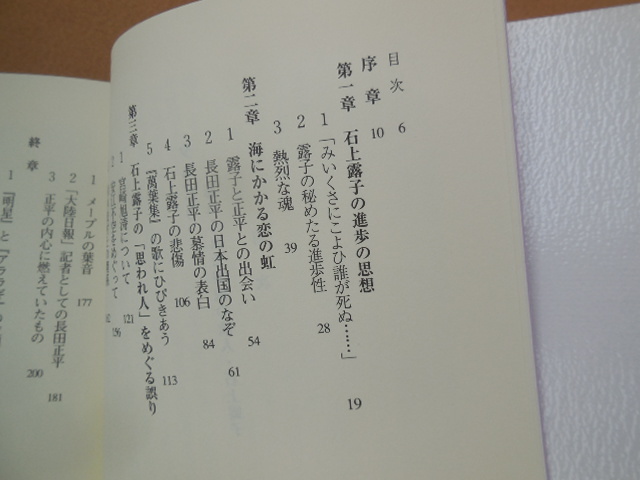 目次 6
序章 10
第一章 石上露子の進歩の思想
1 「みいくさにこよひ誰が死ぬ……」 19
2 露子の秘めたる進歩性 28
3 熱烈な魂 39
第二章 海にかかる恋の虹
1 露子と正平との出会い 54
2 長田正平の日本出国のなぞ 61
3 長田正平の慕情の表白 84
4 石上露子の悲傷 106
5 『萬葉集』の歌にひびきあう 113
第三章 石上露子の「思われ人」をめぐる誤り
1 宮崎旭濤について 121
をめぐって 126
1 メープルの葉音 177
2 「大陸日報」記者としての長田正平 181
3 正平の内心に燃えていたもの 200
終章
1 『明星』と『アララギ』の